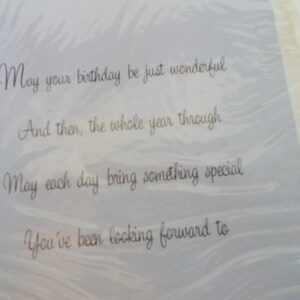 May your birthday be just wonderful
And then, the whole year through
May each day bring something special
You've been looking forward to